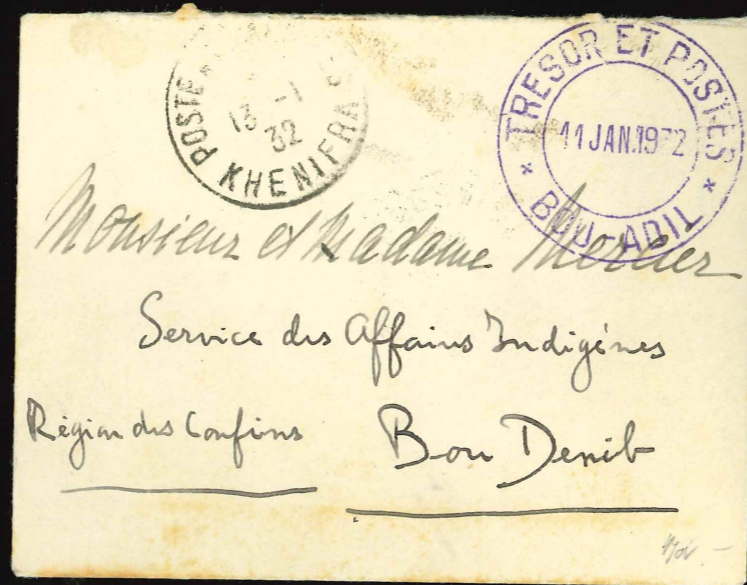 POSTE * KHENIFRA
13 -1
32
TRESOR ET POSTES
11 JAN.1932
* BOU-ADIL *
Monsieur et Madame Mercier
Service des Affaires Indigènes
Région des Confins Bou Denib